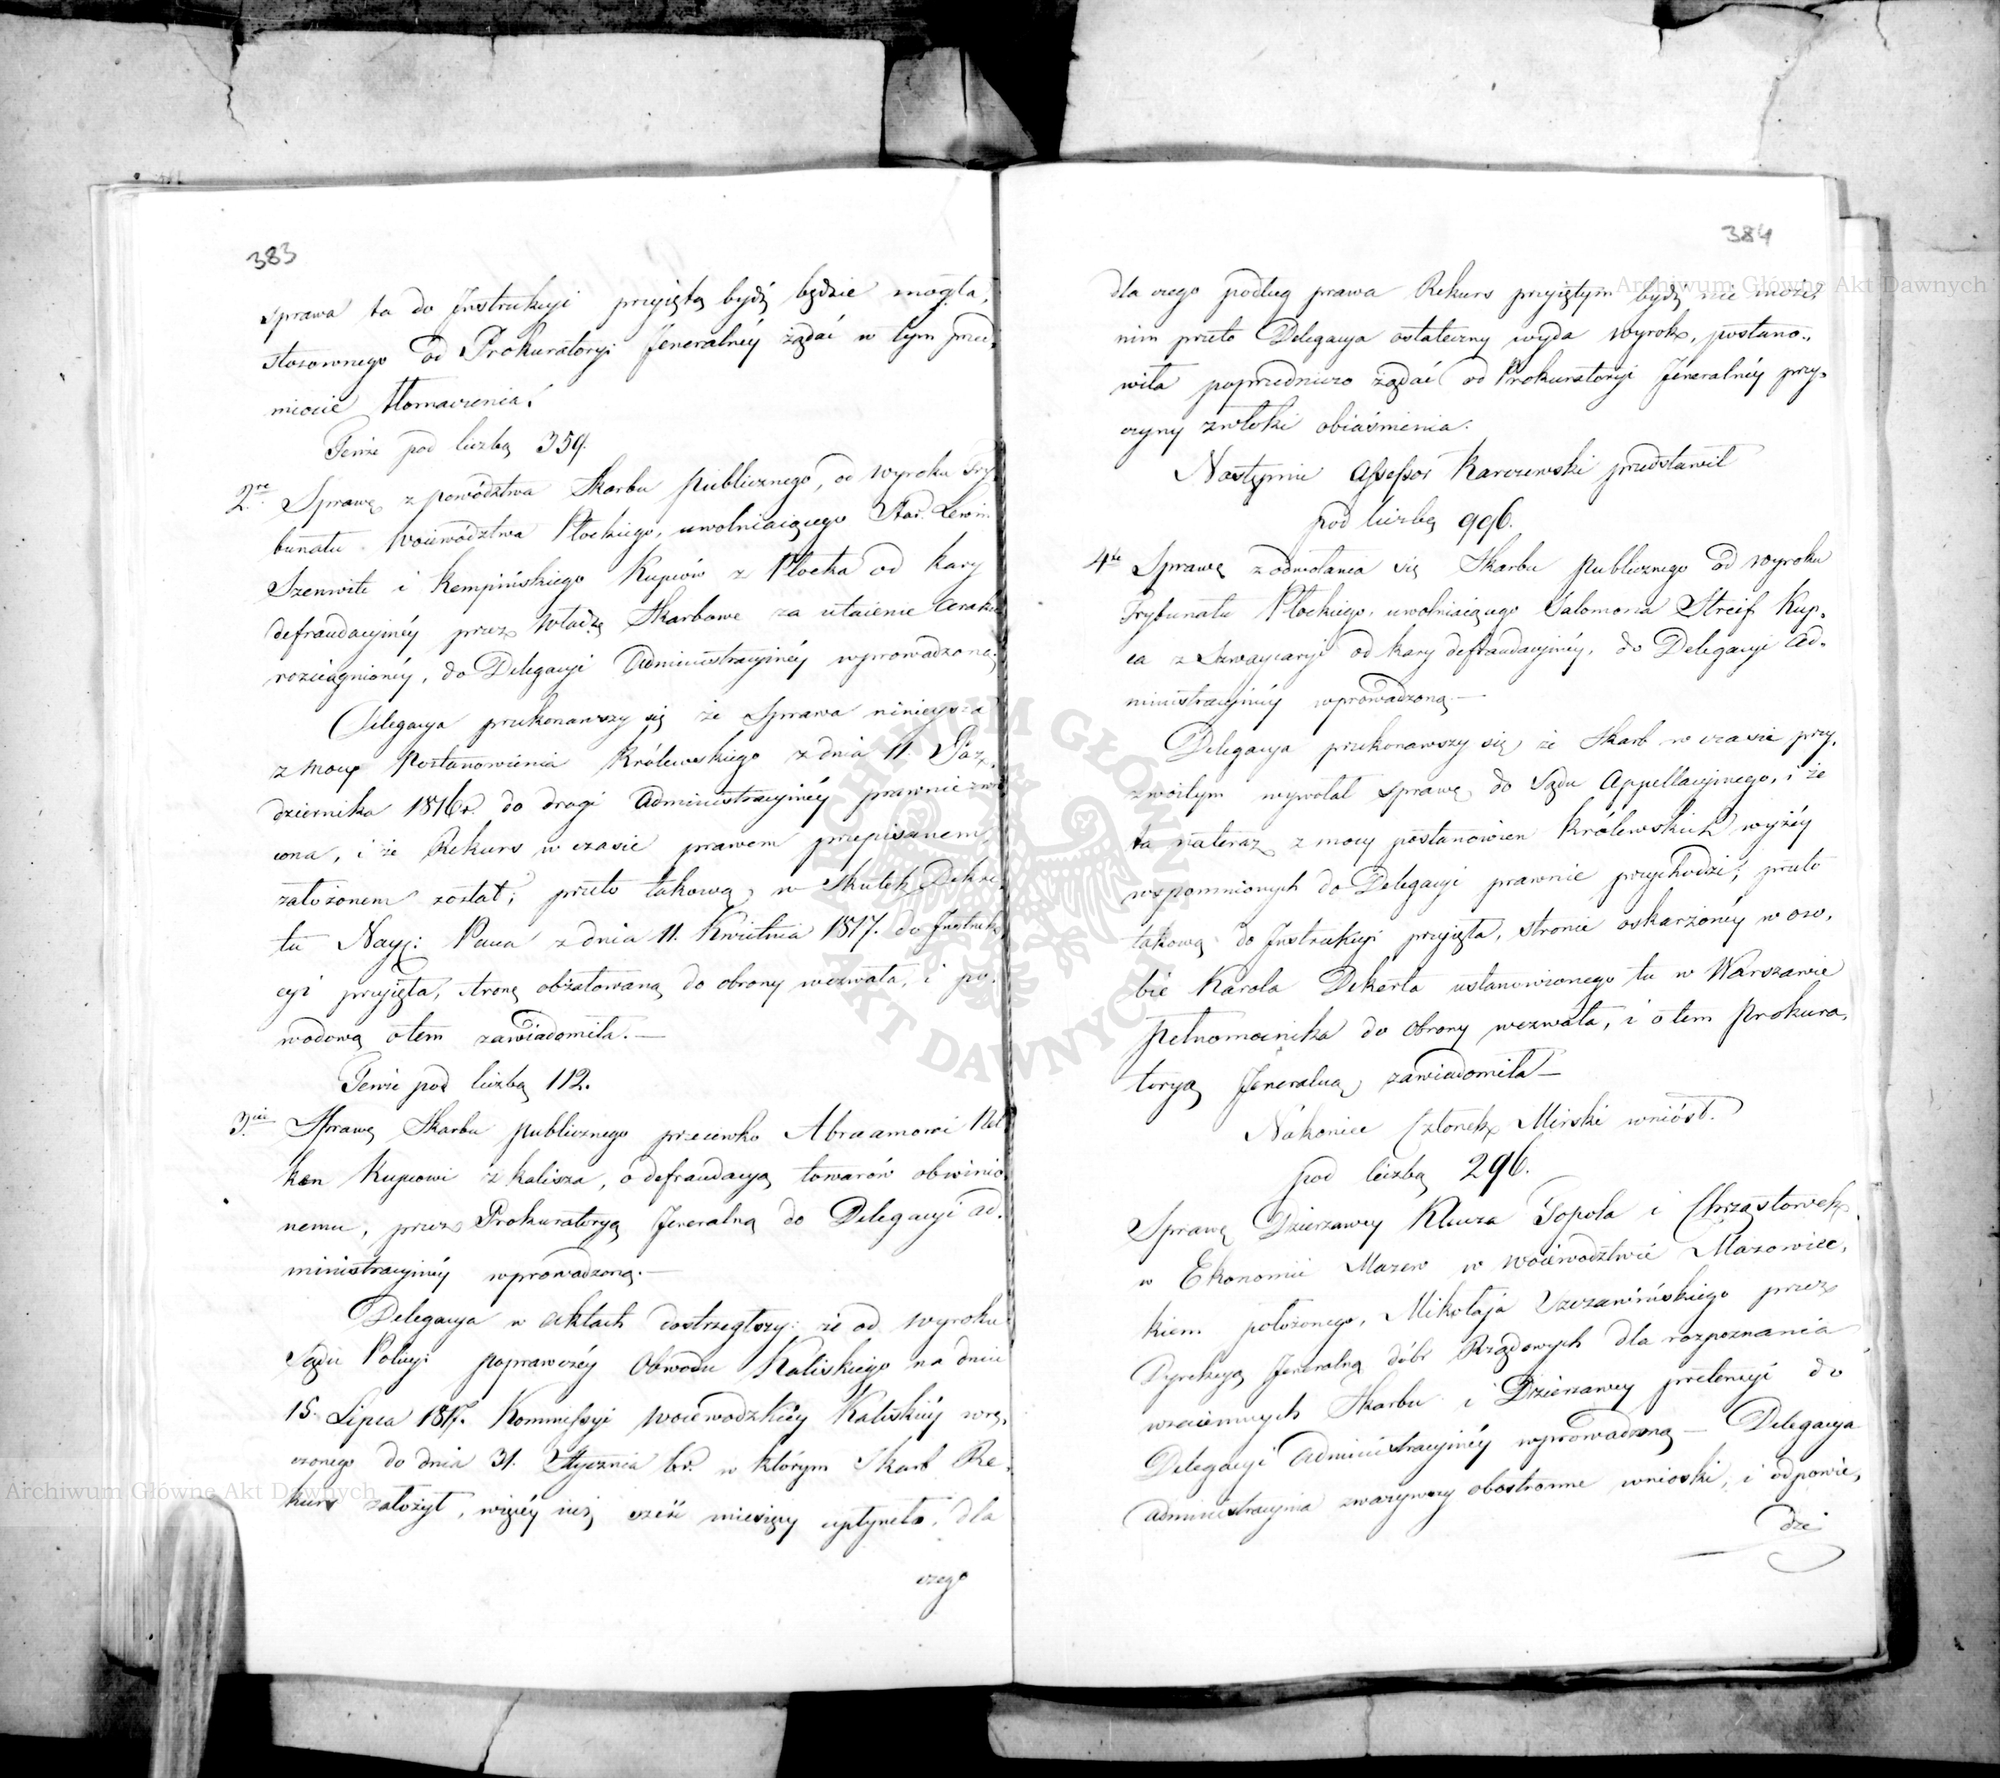 383
sprawa ta do Instrukcyi przyiętą bydź będzie mogła,
stosownego od Prokuratoryi Jeneralnéy żądać w tym przed,
miocie tłomaczenia.
Tenże pod liczbą 359.
2re Sprawę z powództwa Skarbu publicznego, od wyroku Try,
bunału Woiewództwa Płockiego, uwolniaiącego Lewin
Szenwitz i Kempińskiego Kupców z Płocka od kary
defraudacyinéy przez Władzę Skarbowe za utaienie
rozciągnionéy, do Delegacyi Administracyinéy wprowadzoną.
Delegacya przekonawszy się że Sprawa ninieysza
z mocy Postanowienia Królewskiego z dnia 11 Paz,
dziernika 1816r. do drogi Administracyinéy prawnie zwró
cona, i że Rekurs w czasie prawem przepisanem,
założonem został; przeto takową, w Skutek Dekre,
tu Nayj: Pana z dnia 11. Kwietnia 1817. do Instruk,
cyi przyięła, stronę obżałowaną do obrony wezwała, i po,
wodową o tem zawiadomiła. —
Tenże pod liczbą 112.
3cie Sprawę Skarbu publicznego przeciwko Abraamowi Nel
ken Kupcowi z Kalisza, o defraudacyą towarów obwinio
nemu, przez Prokuratoryą Jeneralną do Delegacyi ad,
ministracyinéy wprowadzoną. —
Delegacya w aktach dostrzegłszy: że od wyroku
Sądu Policyi poprawczéy Obwodu Kaliskiego na dniu
15. Lipca 1817. Kommissyi Woiewodzkiéy Kaliskiéy wrę,
czonego do dnia 31. Stycznia br. w którym Skarb Re,
kurs założył, więcéy niż sześć miesięcy upłynęło, dla
czego
384
dla czego podług prawa Rekurs przyiętym bydź nie może,
nim przeto Delegacya ostateczny wyda wyrok, postano,
wiła poprzedniczo żądać od Prokuratoryi Jeneralnéy przy,
czyny zwłoki obiaśnienia.
Następnie Assessor Karczewski przedstawił
pod liczbą 996.
4te Sprawę z odwołania się Skarbu publicznego od wyroku
Trybunału Płockiego, uwolniaiącego Salomona Streif Kup,
ca z Szwaycaryi od kary defraudacyinéy, do Delegacyi Ad,
ministracyinéy wprowadzoną. —
Delegacya przekonawszy się, że Skarb w czasie przy,
zwoitym wywołał sprawę do Sądu Appellacyinego, i że
ta nateraz z mocy postanowien Królewskich wyżéy
wspomnionych do Delegacyi prawnie przychodzi; przeto
takową do Instrukcyi przyięła, stronie oskarżonéy w oso,
bie Karola Dekerta ustanowionego tu w Warszawie
pełnomocnika do obrony wezwała, i o tem Prokura,
toryą Jeneralną, zawiadomiła —
Nakoniec Członek Mirski wniósł.
pod liczbą 296.
Sprawę Dzierzawcy Klucza Topola i Chrząstowek,
w Ekonomii Mazew w Woiewództwie Mazowiec,
kiem położonego, Mikołaja Szczawińskiego przez
Dyrekcyą Jeneralną dóbr Rządowych dla rozpoznania
wzaiemnych Skarbu i Dzierzawcy pretensyi do
Delegacyi Administracyinéy wprowadzoną — Delegacya
Administracyina zważywszy obostronne wnioski, i odpowie,
dzi
Archiwum Główne Akt Dawnych
Archiwum Główne Akt Dawnych
ARCHIWUM GŁÓWNE AKT DAWNYCH